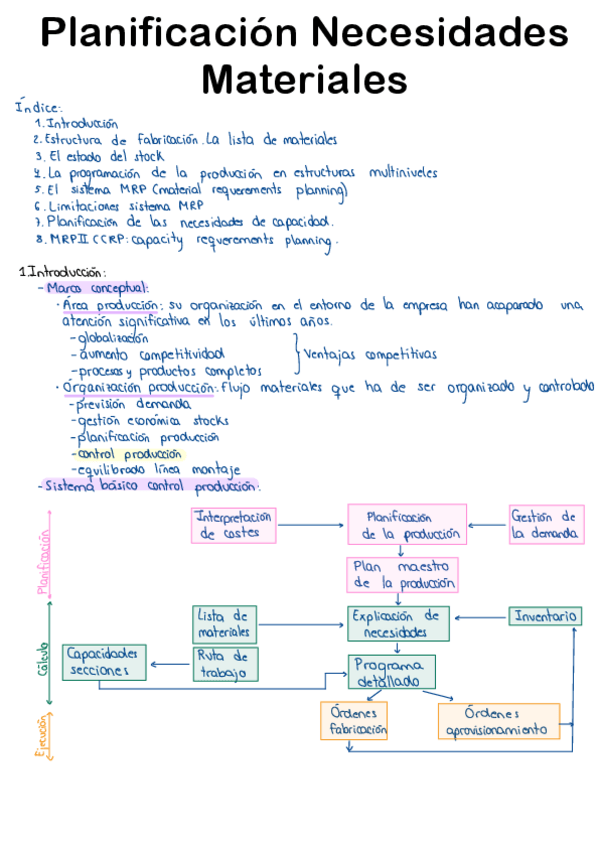 Planificación Necesidades
Materiales
Índice:
1. Introducción
2. Estructura de fabricación. La lista de materiales
3. El estado del stock
4. La programación de la producción en estructuras multiniveles
5. El sistema MRP (material requerements planning)
6. Limitaciones sistema MRP
7. Planificación de las necesidades de capacidad.
8. MRPII (CRP: capacity requerements planning.
1. Introducción:
- Marco conceptual:
· Área producción: su organización en el entorno de la empresa han acaparado una
atención significativa en los últimos años.
- globalización
- aumento competitividad
- procesos y productos completos
Ventajas competitivas
· Organización producción: flujo materiales que ha de ser organizado y controlado
- previsión demanda
- gestión económica stocks
- planificación producción
- control producción
- equilibrado línea montaje
- Sistema básico control producción:
Planificación
Interpretación
de costes
Planificación
de la producción
Gestión de
la demanda
Plan maestro
de la producción
Cálculo
Lista de
materiales
Explicación de
necesidades
Inventario
Capacidades
secciones
Ruta de
trabajo
Programa
detallado
Ejecución
Órdenes
fabricación
Órdenes
aprovisionamiento